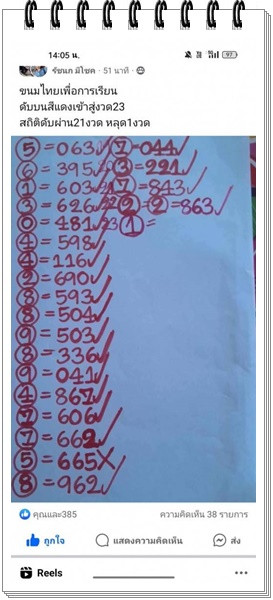 14:05 น.
97
รัชนก มีโชค · 51 นาที ·
ขนมไทยเพื่อการเรียน
ดับบนสีแดงเข้าสู่งวด23
สถิติดับผ่าน21งวด หลุด1งวด
⑤ = 063✓ ⑦ = 044✓
⑥ = 395✓ ③ = 221✓
① = 603✓ ⑦ = 843✓
③ = 626✓ 22 ② = ② = 863✓
⓪ = 481✓ 23 ① =
④ = 598✓
④ = 116✓
⑨ = 690✓
⑧ = 593✓
⑧ = 504✓
⑨ = 503✓
⑧ = 336✓
⑨ = 041✓
④ = 867✓
= 606✓
⑦ = 662✓
⑤ = 665X
⑧ = 962✓
คุณและ385
ความคิดเห็น 38 รายการ
ถูกใจ
แสดงความคิดเห็น
ส่ง
Reels